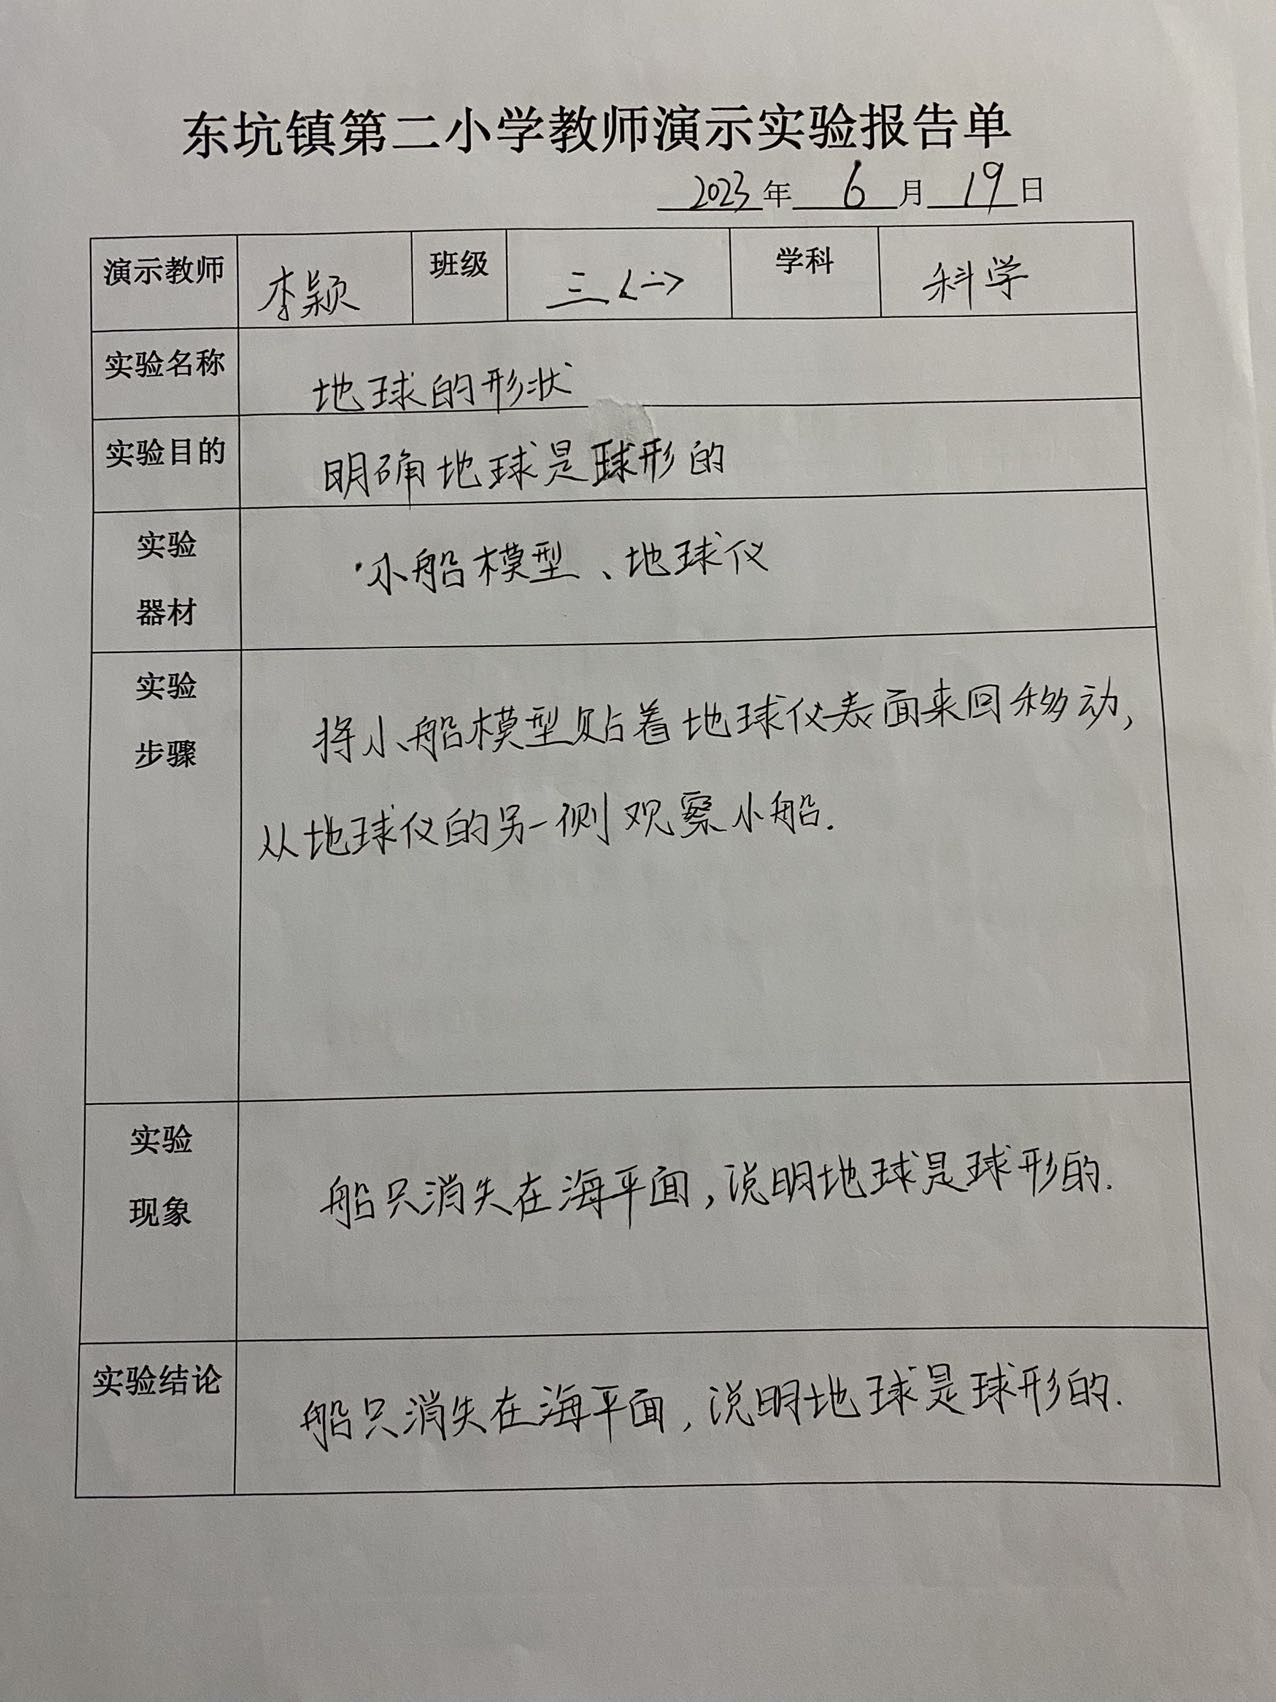 东坑镇第二小学教师演示实验报告单
2023年 6 月 19 日
演示教师 李颖 班级 三〈一〉 学科 科学
实验名称 地球的形状
实验目的 明确地球是球形的
实验
器材
小船模型、地球仪
实验
步骤
将小船模型贴着地球仪表面来回移动,
从地球仪的另一侧观察小船.
实验
现象
船只消失在海平面,说明地球是球形的.
实验结论 船只消失在海平面,说明地球是球形的.